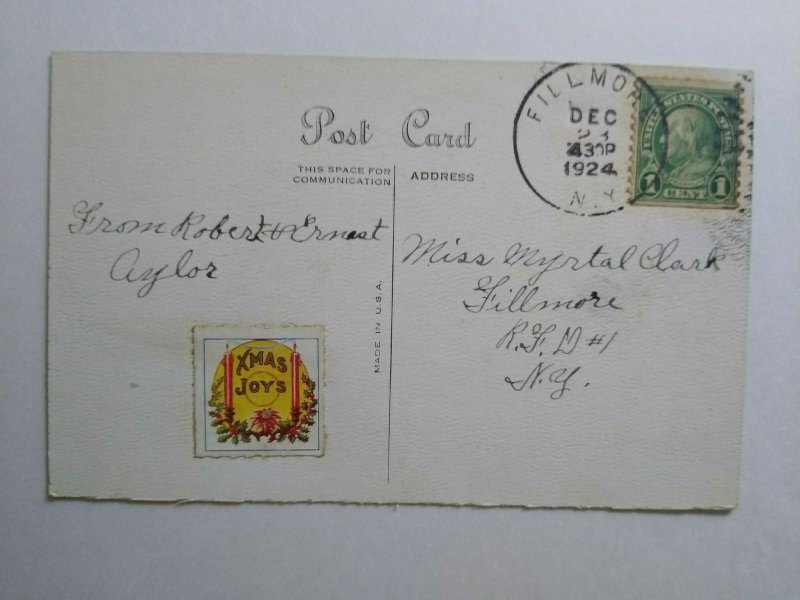 Post Card
THIS SPACE FOR
COMMUNICATION
ADDRESS
FILLMOR
DEC
23
430P
1924
N.Y.
UNITED STATES POSTAGE
1 CENT 1
From Robert & Ernest
Aylor
Miss Myrtal Clark
Fillmore
R.F.D #1
N.Y.
MADE IN U.S.A.
XMAS
JOYS